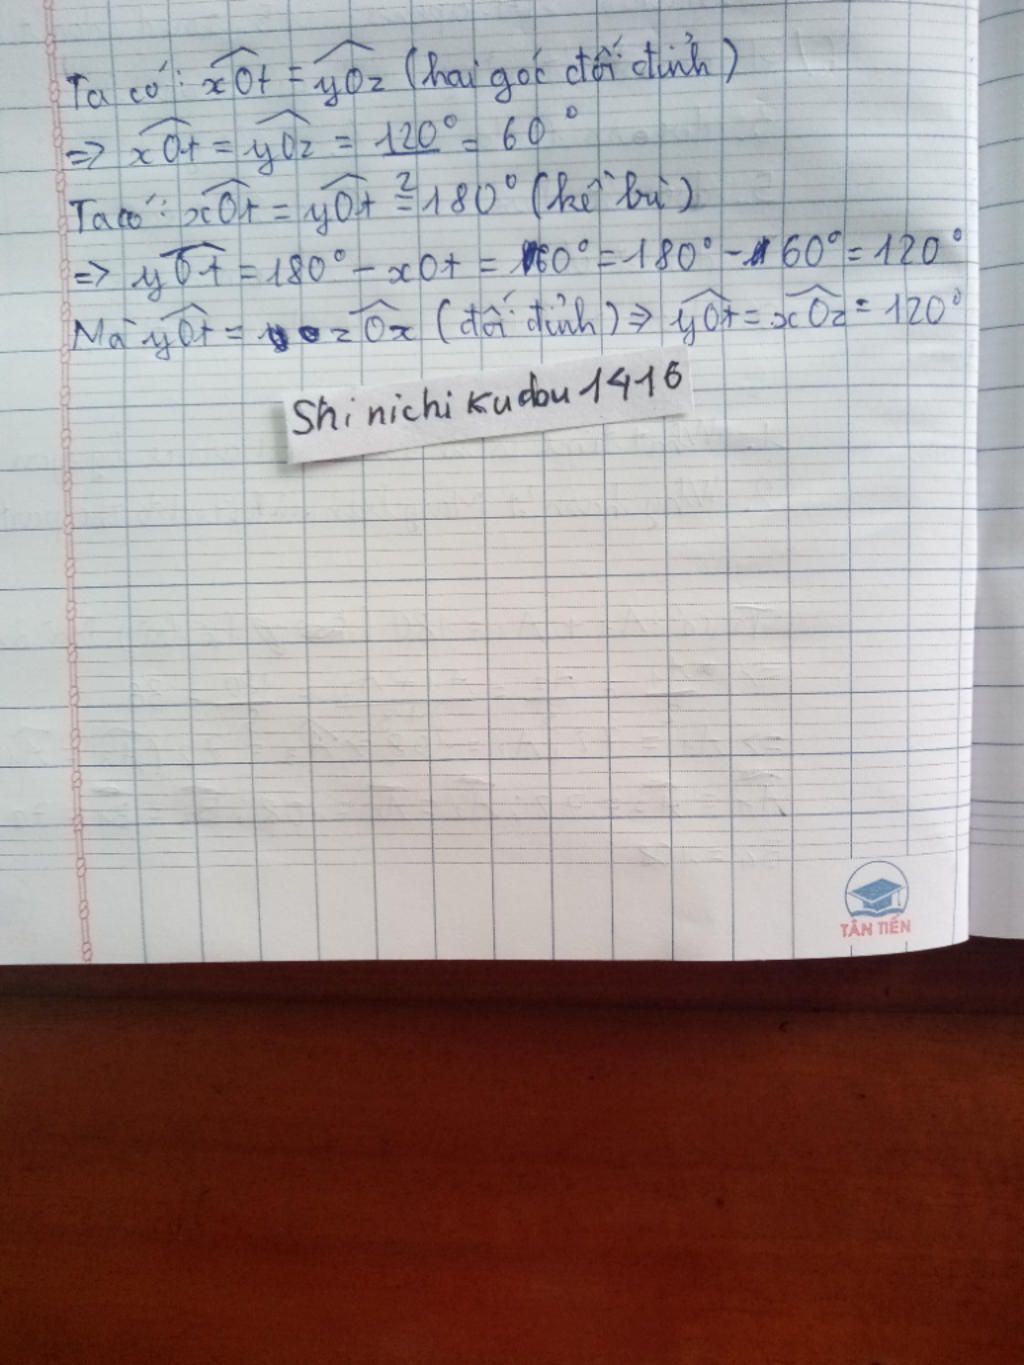 Ta có: xOt = yOz (hai góc đối đỉnh)
=> xOt = yOz = 120°/2 = 60°
Ta có: xOt = yOt = 180° (kề bù)
=> yOt = 180° - xOt = 60° = 180° - 60° = 120°
Mà yOt = zOx (đối đỉnh) => yOt = xOz = 120°
Shinichi Kudou 1416
TÂN TIẾN